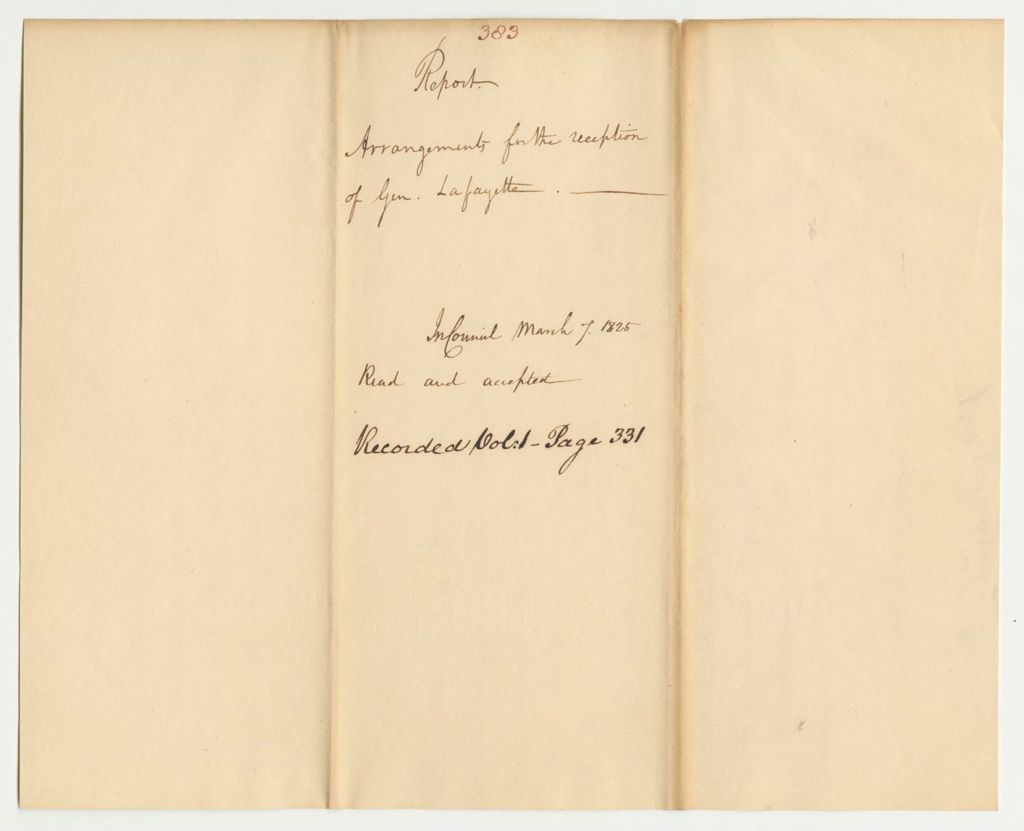 383
Report.
Arrangements for the reception
of Gen. Lafayette.
In Council March 7. 1825
Read and accepted
Recorded Vol: 1 - Page 331